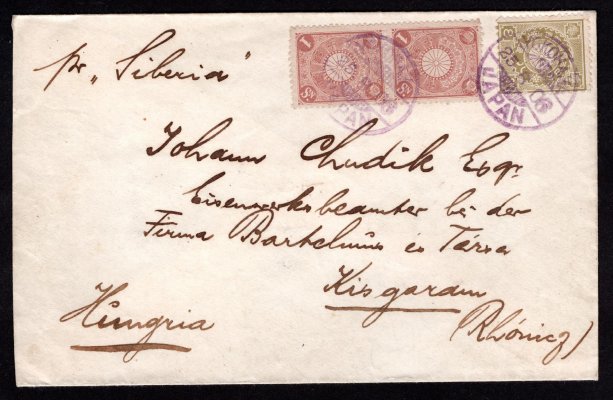 pr „Siberia“
Johann Chudik Esqr
Eisenwerksbeamter bei der
Firma Bartelmus és Társa
Kisgaram
(Rhónicz)
Hungria
JAPAN
JAPAN